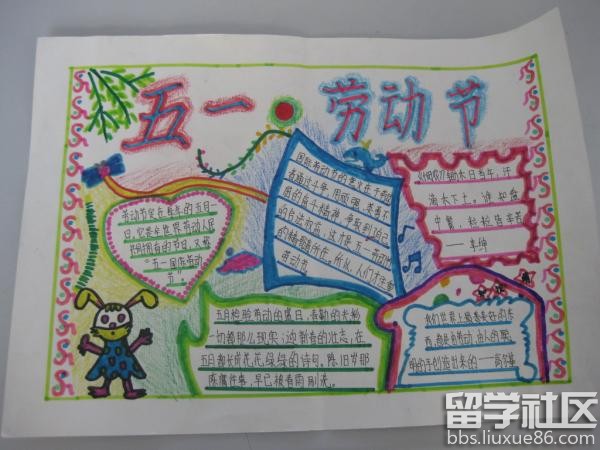 五一 劳动节
劳动节定在每年的五月一
日,它是全世界劳动人民
共同拥有的节日,又称
“五一国际劳动
节”
国际劳动节的意义在于劳动
者通过斗争,用顽强、英勇不
屈的奋斗精神,争取到自己
的合法权益,
的精神所在。所以,人们才庆祝
劳动节
锄禾日当午,汗
滴禾下土。谁知盘
中餐,粒粒皆辛苦
——李绅
五月检验劳动的盛日,喜勤的未躺
一切都那么现实;迎新春的壮志,在
五月都长成花花绿绿的诗句。陈旧岁那
感慨往事,早已被春雨刷洗。
我们世界上最美好的东
西,都是由劳动、由人的聪
明的手创造出来的——高尔基
留学社区
bbs.liuxue86.com